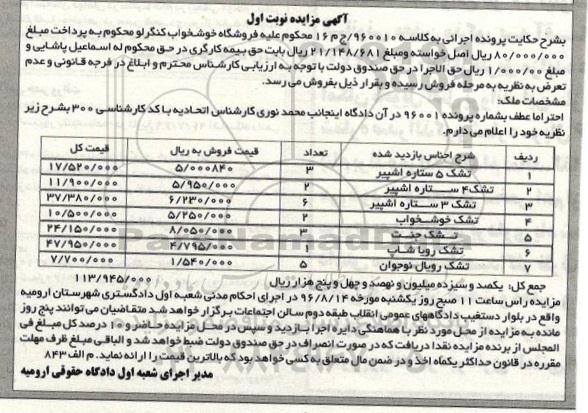 آگهی مزایده نوبت اول
بشرح حکایت پرونده اجرائی به کلاسه ۹۶۰۰۱۰/ج م ۱۶ محکوم علیه فروشگاه خوشخواب کنگرلو محکوم به پرداخت مبلغ
۸۰/۰۰۰/۰۰۰ ریال اصل خواسته ومبلغ ۲۱/۱۴۸/۶۸۱ ریال بابت حق بیمه کارگری در حق محکوم له اسماعیل پاشایی و
مبلغ ۱/۰۰۰/۰۰ ریال حق الاجرا در حق صندوق دولت با توجه به ارزیابی کارشناس محترم و ابلاغ در فرجه قانونی و عدم
تعرض به نظریه به مرحله فروش رسیده و بقرار ذیل بفروش می رسد.
مشخصات ملک:
احتراما عطف بشماره پرونده ۹۶۰۰۱ در آن دادگاه اینجانب محمد نوری کارشناس اتحادیه با کد کارشناسی ۳۰۰ بشرح زیر
نظریه خود را اعلام می دارم.
ردیف شرح اجناس بازدید شده تعداد قیمت فروش به ریال قیمت کل
۱ تشک ۵ ستاره اشپیر ۳ ۵/۰۰۰۸۴۰ ۱۷/۵۲۰/۰۰۰
۲ تشک ۴ ستاره اشپیر ۲ ۵/۹۵۰/۰۰۰ ۱۱/۹۰۰/۰۰۰
۳ تشک ۳ ستاره اشپیر ۶ ۶/۲۳۰/۰۰۰ ۳۷/۳۸۰/۰۰۰
۴ تشک خوشخواب ۲ ۵/۲۵۰/۰۰۰ ۱۰/۵۰۰/۰۰۰
۵ تشک جنت ۳ ۸/۰۵۰/۰۰۰ ۲۴/۱۵۰/۰۰۰
۶ تشک رویا شاپ ۱ ۴/۷۹۵/۰۰۰ ۴۷/۹۵۰/۰۰۰
۷ تشک رویال نوجوان ۵ ۱/۵۴۰/۰۰۰ ۷/۷۰۰/۰۰۰
جمع کل: یکصد و سیزده میلیون و نهصد و چهل و پنج هزار ریال ۱۱۳/۹۴۵/۰۰۰
مزایده راس ساعت ۱۱ صبح روز یکشنبه مورخه ۹۶/۸/۱۴ در اجرای احکام مدنی شعبه اول دادگستری شهرستان ارومیه
واقع در بلوار دستغیب دادگاههای عمومی انقلاب طبقه دوم سالن اجتماعات برگزار خواهد شد متقاضیان می توانند پنج روز
مانده به مزایده از محل مورد نظر با هماهنگی دایره اجرا بازدید و سپس در محل مزایده حاضر و ۱۰ درصد کل مبلغ فی
المجلس از برنده مزایده نقدا دریافت که در صورت انصراف در حق صندوق دولت ضبط خواهد شد و الباقی مبلغ ظرف مهلت
مقرره در قانون حداکثر یکماه اخذ و در ضمن مال متعلق به کسی خواهد بود که بالاترین قیمت را ارائه نماید. م الف ۸۴۳
مدیر اجرای شعبه اول دادگاه حقوقی ارومیه